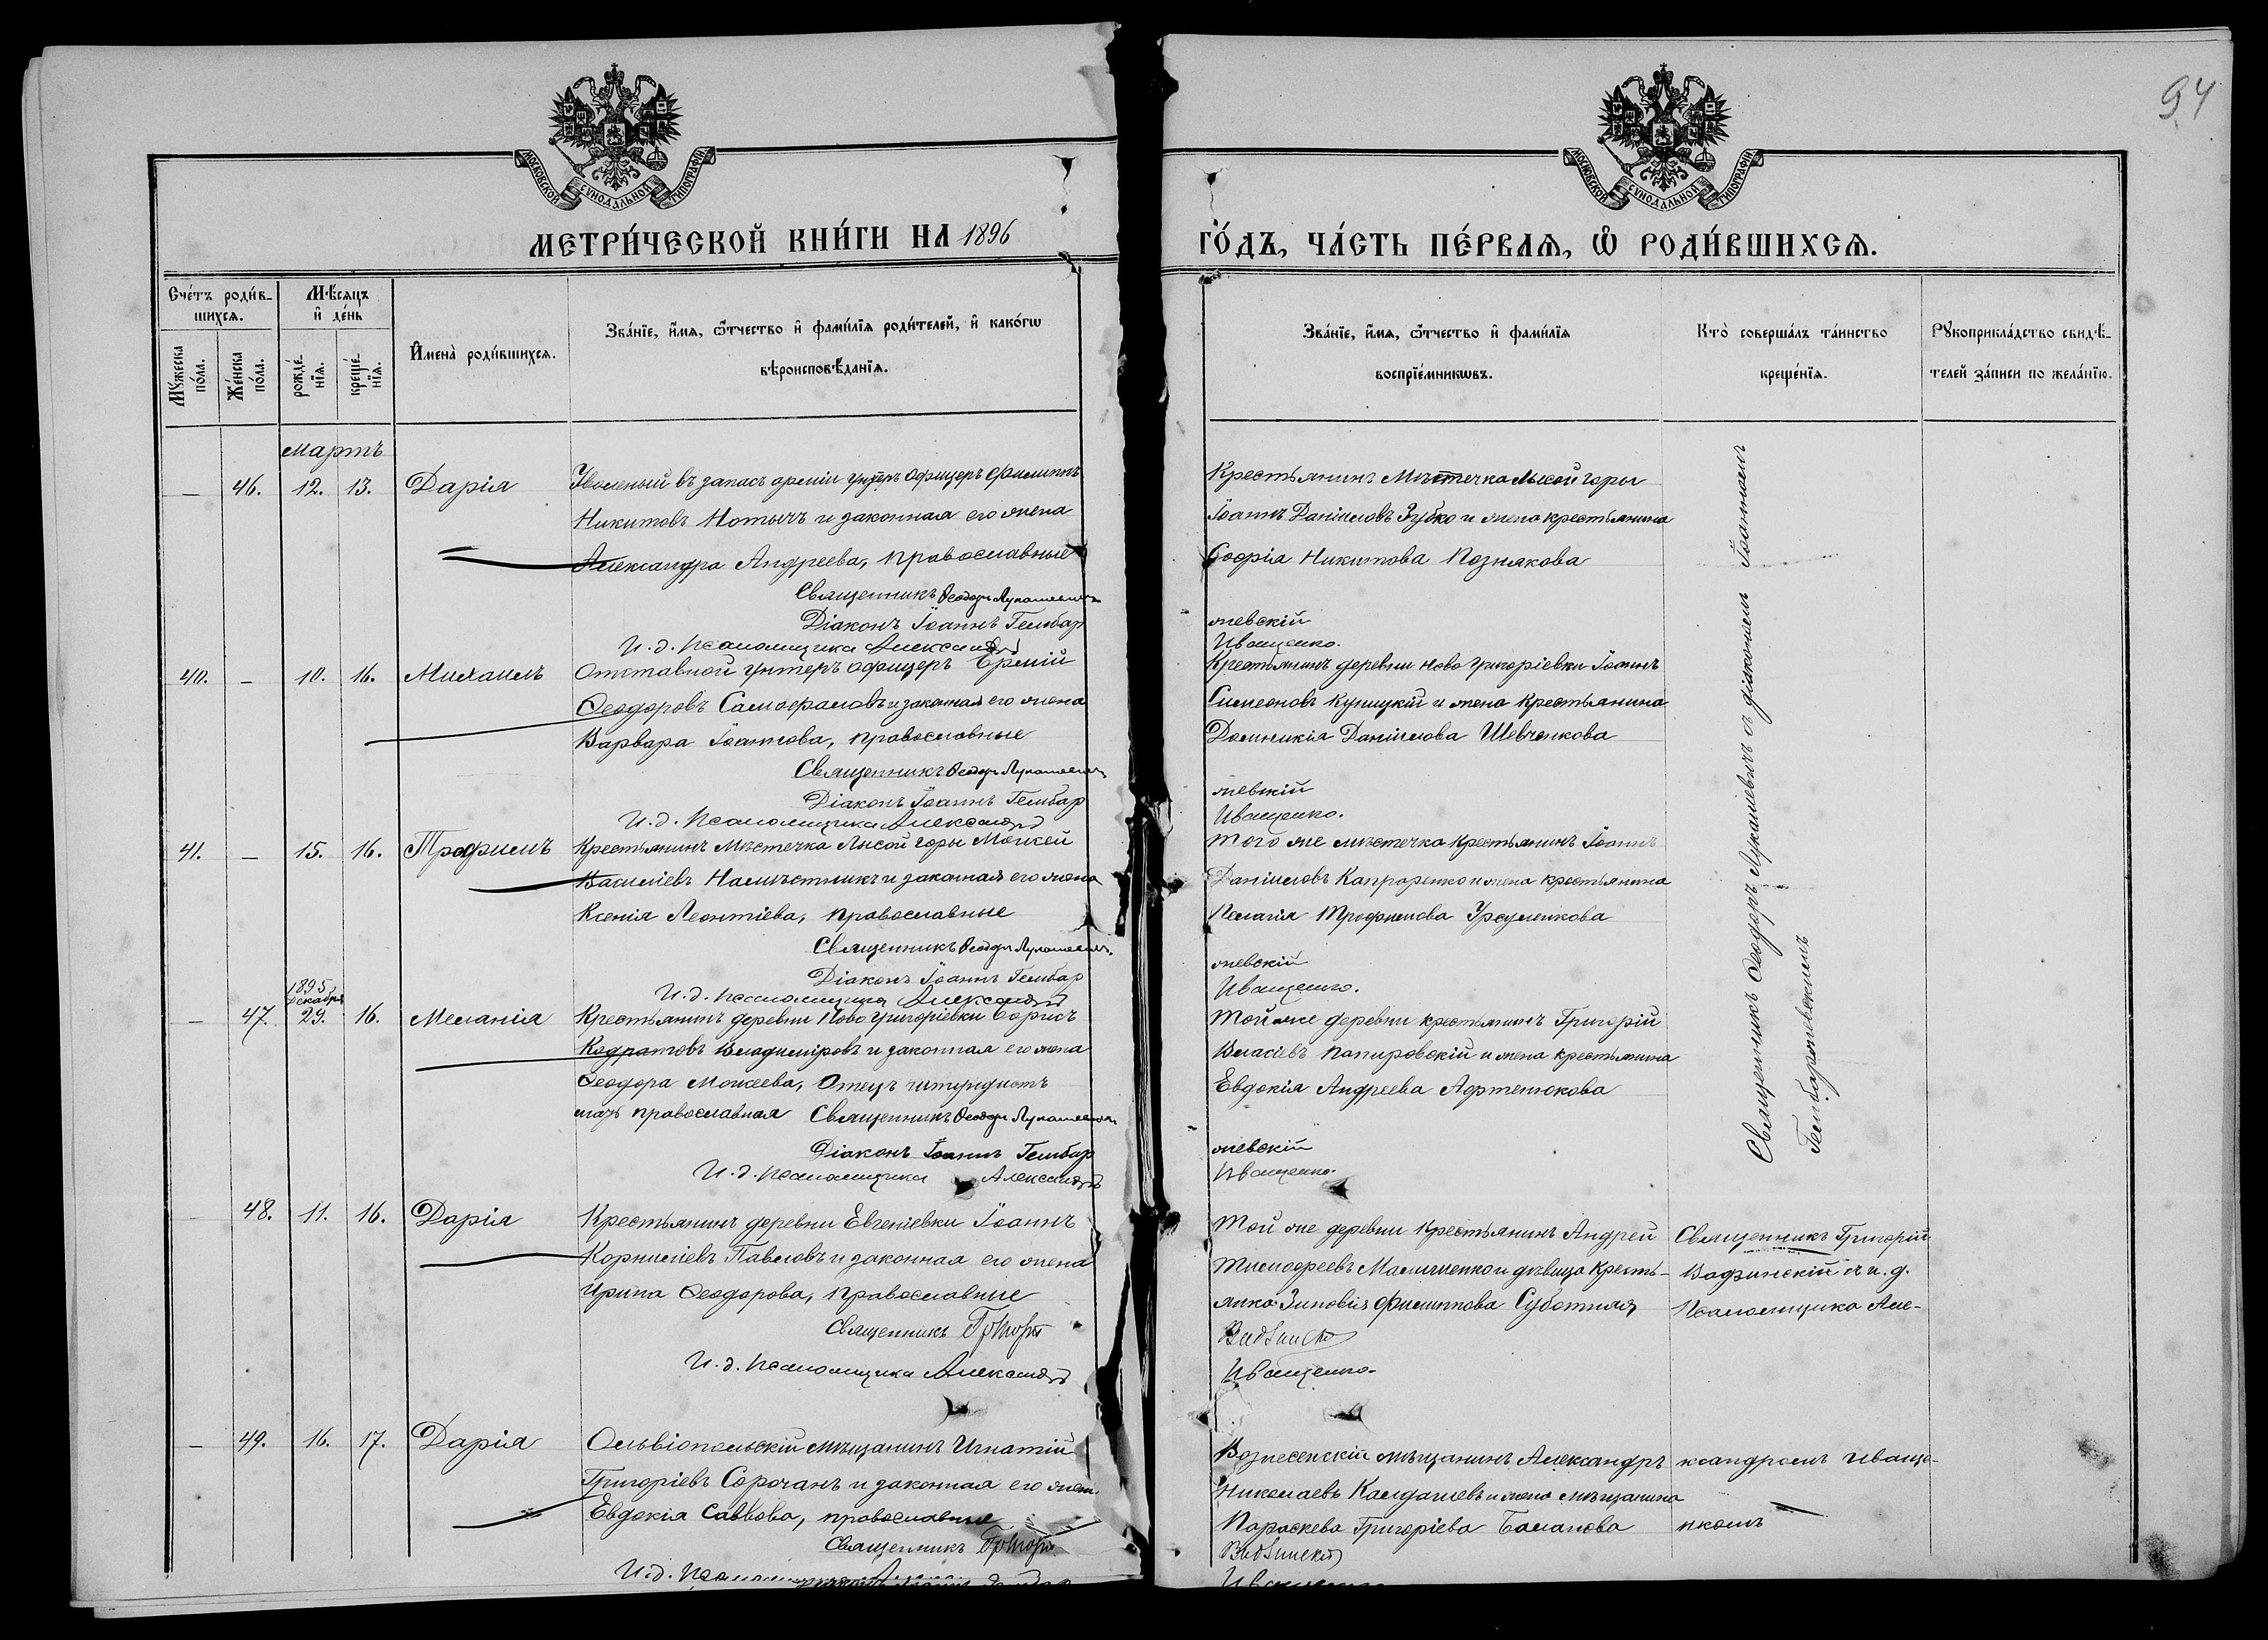 94
МОСКОВСКОЙ СѴНОДАЛЬНОЙ ТИПОГРАФІИ
МЕТРИ́ЧЕСКОЙ КНИ́ГИ НА 1896
МОСКОВСКОЙ СѴНОДАЛЬНОЙ ТИПОГРАФІИ
ГО́ДЪ, ЧА́СТЬ ПЕ́РВАЯ, Ѡ РОДИ́ВШИХСЯ.
Счетъ родив-
шихся.
Мужеска пола.
Женска пола.
Мѣсяцъ
и день
рожде-
нїя.
креще-
нїя.
Имена родившихся.
Званїе, имя, ѿчество и фамилїя родителей, и какогѡ
вѣроисповѣданїя.
Званїе, имя, ѿчество и фамилїя
воспрїемникѡвъ.
Кто совершалъ таинство
крещенїя.
Рукоприкладство свидѣ-
телей записи по желанїю.
Мартъ
— 46. 12. 13. Дарія
Уволеный въ запасъ арміи унтеръ офицеръ Филиппъ
Никитовъ Мотычъ и законная его жена
Александра Андреева, православные
Священникъ Ѳеодоръ Лукашевичъ
Діаконъ Іоаннъ Гембар
И. д. псаломщика Александръ
Крестьянинъ Мѣстечка Лысой горы
Іоаннъ Даніиловъ Зубко и жена крестьянина
Софія Никитова Познякова
жевскій
Иващенко.
40. — 10. 16. Михаилъ
Отставной унтеръ офицеръ Ермій
Ѳеодоровъ Самофаловъ и законная его жена
Варвара Іоаннова, православные
Священникъ Ѳеодоръ Лукашевичъ
Діаконъ Іоаннъ Гембар
И. д. псаломщика Александръ
Крестьянинъ деревни Ново Григоріевки Іоаннъ
Симеоновъ Куницкій и жена крестьянина
Домникія Даніилова Шевченкова
жевскій
Иващенко.
41. — 15. 16. Трофимъ
Крестьянинъ Мѣстечка Лысой горы Моисей
Василіевъ Намѣстникъ и законная его жена
Ксенія Леонтіева, православные
Священникъ Ѳеодоръ Лукашевичъ
Діаконъ Іоаннъ Гембар
И. д. псаломщика Александръ
того же мѣстечка крестьянинъ Іоаннъ
Даніиловъ Капроренко и жена крестьянина
Пелагія Трофимова
жевскій
Иващенко.
— 47. 1895 декабря 29. 16. Меланія
Крестьянинъ деревни Ново Григоріевки Борисъ
Кодратовъ Владиміровъ и законная его жена
Ѳеодора Моисеева, Отецъ штундистъ
мать православная Священникъ Ѳеодоръ Лукашевичъ
Діаконъ Іоаннъ Гембар
И. д. псаломщика Александръ
Той же деревни крестьянинъ Григорій
Власіевъ Папировскій и жена крестьянина
Евдокія Андреева Афтенюкова
жевскій
Иващенко.
Священникъ Ѳеодоръ Лукашевичъ съ діакономъ Іоанномъ
Гембаржевскимъ
48. 11. 16. Дарія
Крестьянинъ деревни Евгеніевки Іоаннъ
Корниліевъ Павловъ и законная его жена
Ирина Ѳеодорова, православные
Священникъ Григорій
И. д. псаломщика Александръ
Той же деревни крестьянинъ Андрей
Тимофеевъ Малишенко и дѣвица кресть-
янка Зиновія Филиппова Суботняя
Иващенко.
Священникъ Григорій
съ и. д.
псаломщика Але-
— 49. 16. 17. Дарія
Ольвіопольскій мѣщанинъ Игнатій
Григоріевъ Сорочанъ и законная его жена
Евдокія Саввова, православные
Священникъ Григорій
И. д.
Вознесенскій мѣщанинъ Александръ
Николаевъ Калдашевъ и жена мѣщанина
Параскева Григоріева Баланова
ксандромъ Иваще-
нкомъ